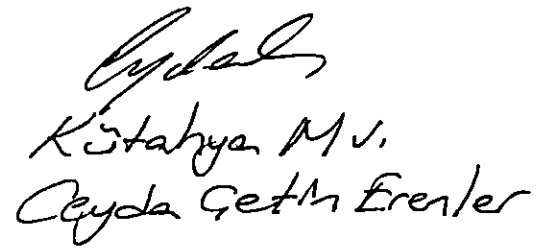 Kütahya Mv.
Ceyda Çetin Erenler